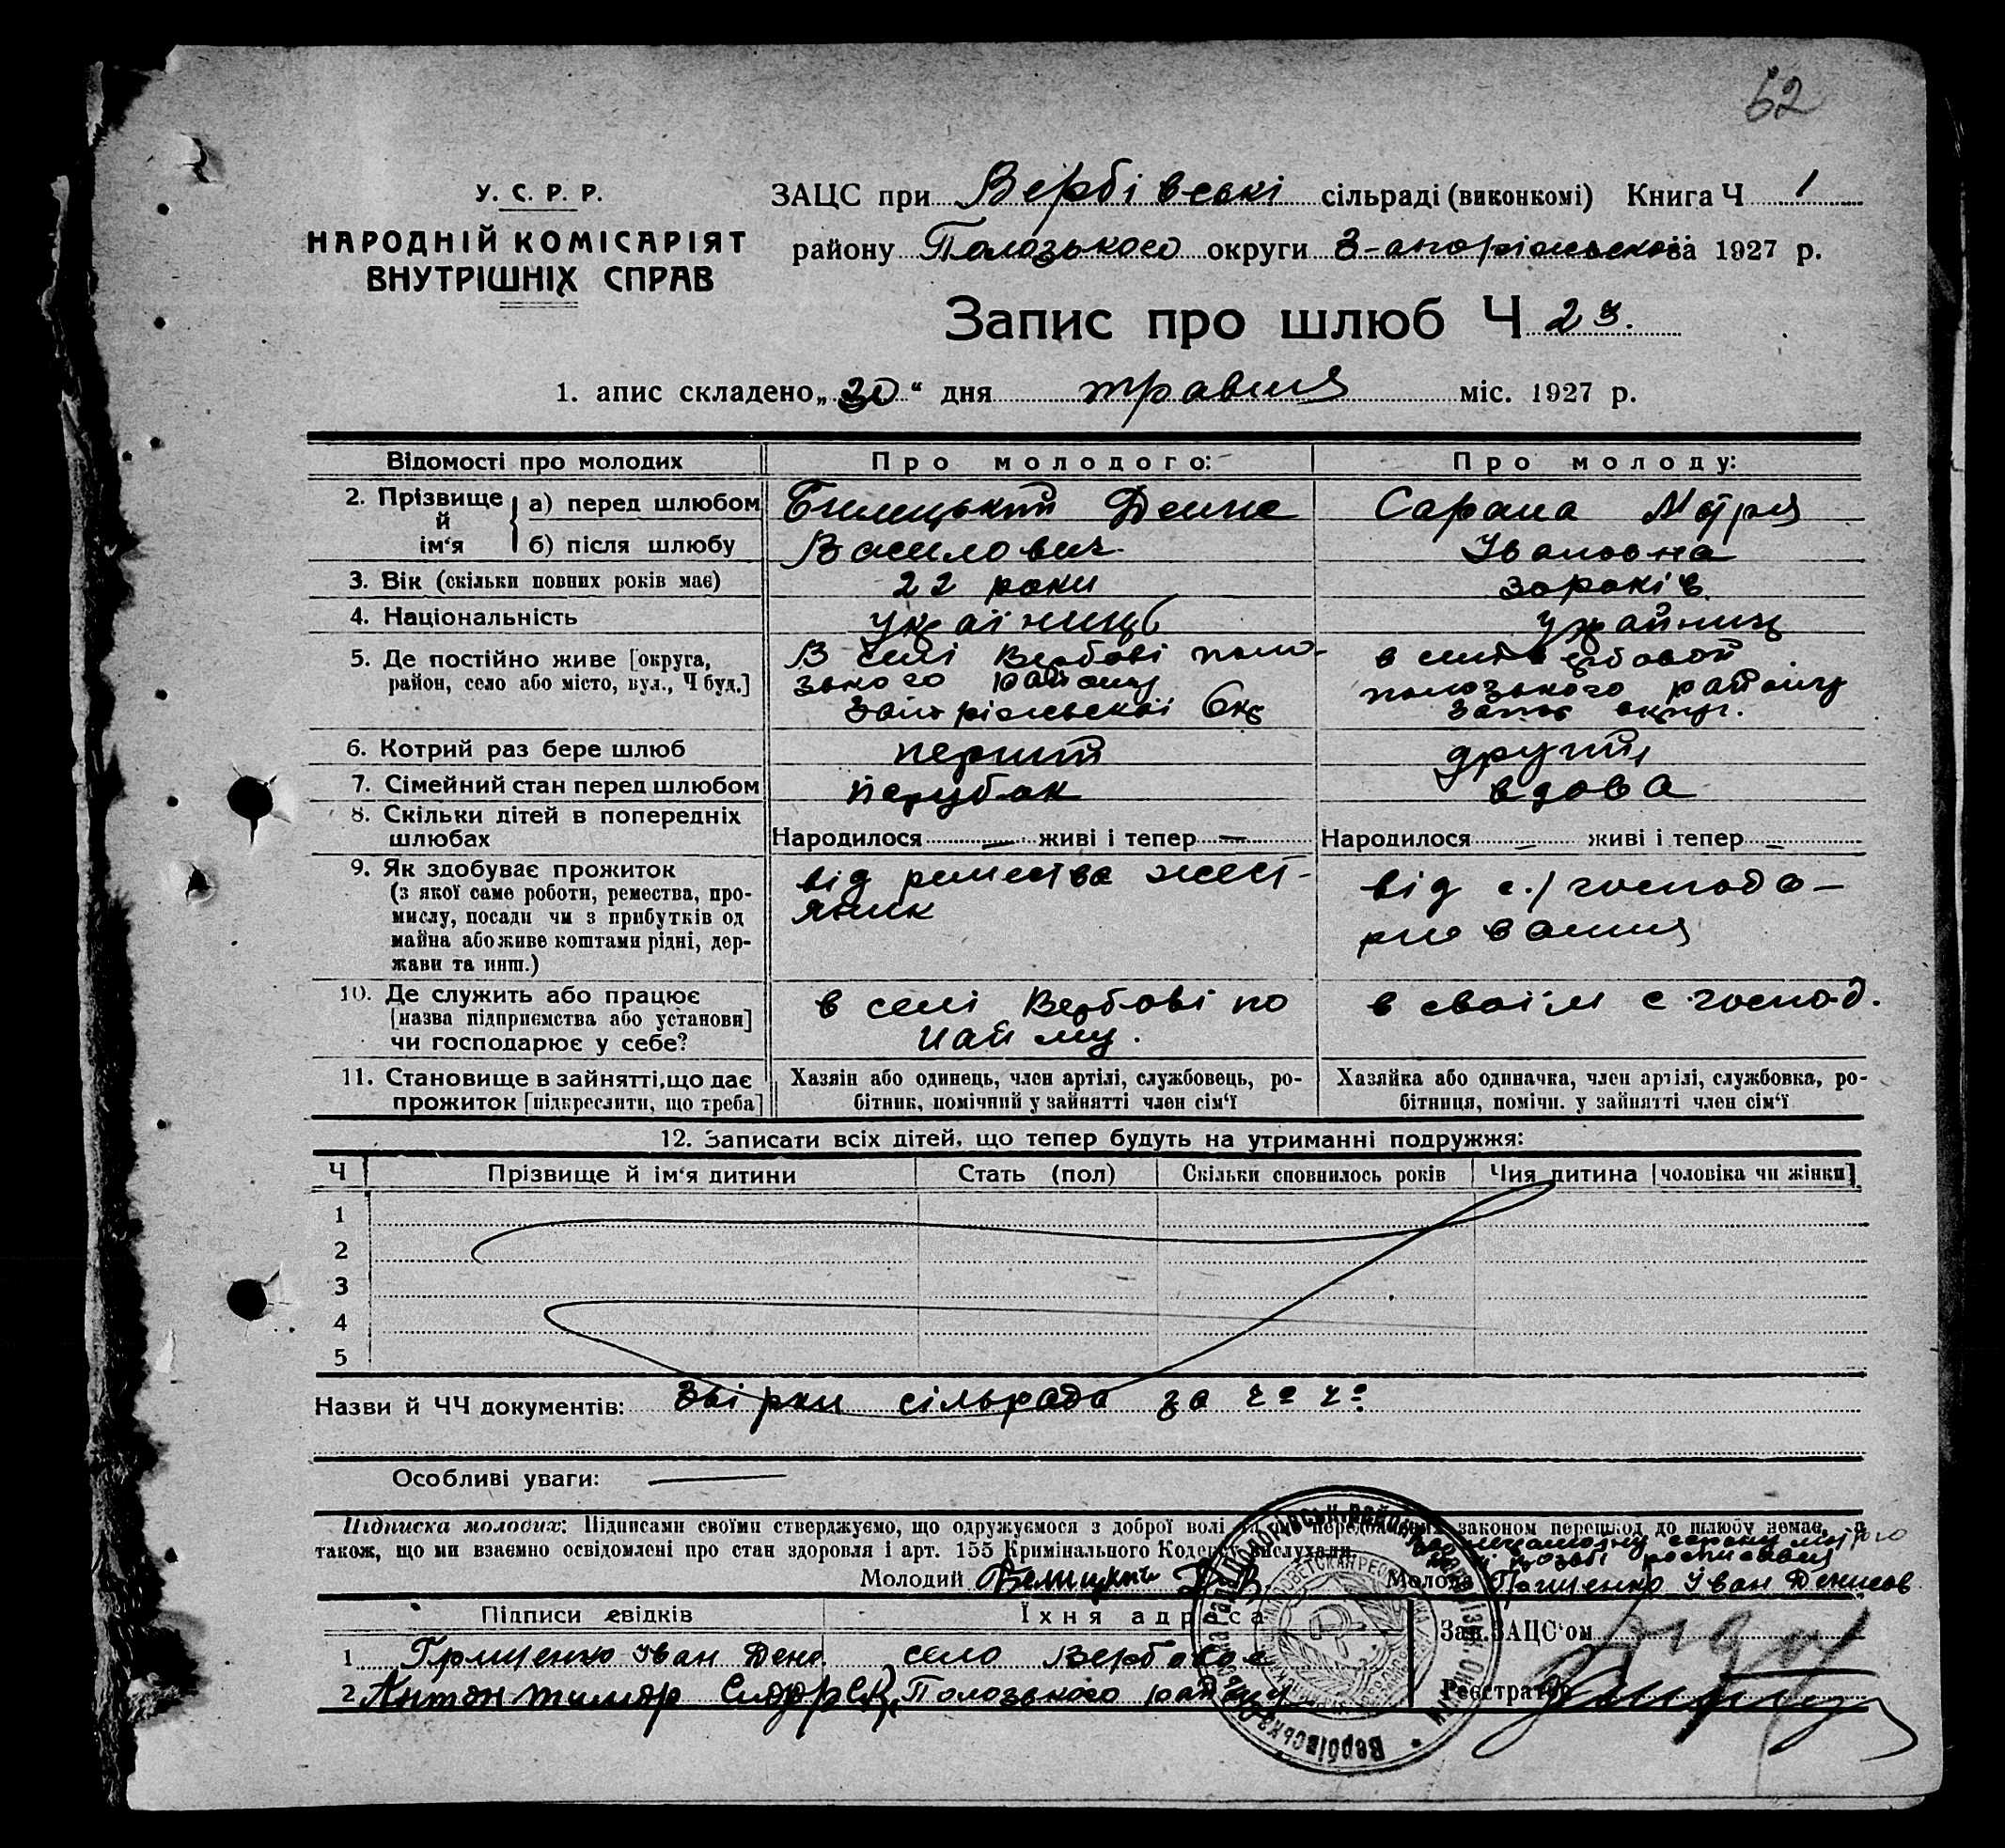 62
У. С. Р. Р.
НАРОДНІЙ КОМІСАРІЯТ
ВНУТРІШНІХ СПРАВ
ЗАЦС при Вербівські сільраді (виконкомі) Книга Ч 1
району Полозького округи Запоріжської за 1927 р.
Запис про шлюб Ч 23.
1. апис складено „20“ дня травня міс. 1927 р.
Відомості про молодих
Про молодого:
Про молоду:
2. Прізвище й ім‘я
а) перед шлюбом
б) після шлюбу
Василович
Сарана Мотря
Івановна
3. Вік (скільки повних років має)
22 роки
30 років
4. Національність
українець
5. Де постійно живе [округа,
район, село або місто, вул., Ч буд.]
В селі Вербові поло-
зького району
полозького району
6. Котрий раз бере шлюб
перший
другий
7. Сімейний стан перед шлюбом
парубок
вдова
8. Скільки дітей в попередніх
шлюбах
Народилося — живі і тепер —
Народилося — живі і тепер —
9. Як здобуває прожиток
(з якої саме роботи, ремества, про-
мислу, посади чи з прибутків од
майна або живе коштами рідні, дер-
жави та инш.)
від ремества жест-
яник
від с./господа-
рювання
10. Де служить або працює
[назва підприємства або установи]
чи господарює у себе?
в селі Вербові по
найму.
в своїм с господ.
11. Становище в зайнятті, що дає
прожиток [підкреслити, що треба]
Хазяін або одинець, член артілі, службовець, ро-
бітник, помічний у зайнятті член сім‘ї
Хазяйка або одиначка, член артілі, службовка, ро-
бітниця, помічн. у зайнятті член сім‘ї
12. Записати всіх дітей, що тепер будуть на утриманні подружжя:
Ч
Прізвище й ім‘я дитини
Стать (пол)
Скільки сповнилось років
Чия дитина [чоловіка чи жінки]
1
2
3
4
5
Назви й ЧЧ документів: Звірки сільрада за
Особливі уваги: —
Підписка молодих: Підписами своїми стверджуємо, що одружуємося з доброї волі законом перешкод до шлюбу немає, а
також, що ми взаємно освідомлені про стан здоровля і арт. 155 Кримінального Кодексу вислухали.
Молодий
Молода Іван Денисов
Підписи свідків
Їхня адреса
1 Іван Дено село Вербове
2 Антон Полозького району
Зав. ЗАЦС‘ом
Реєстратор